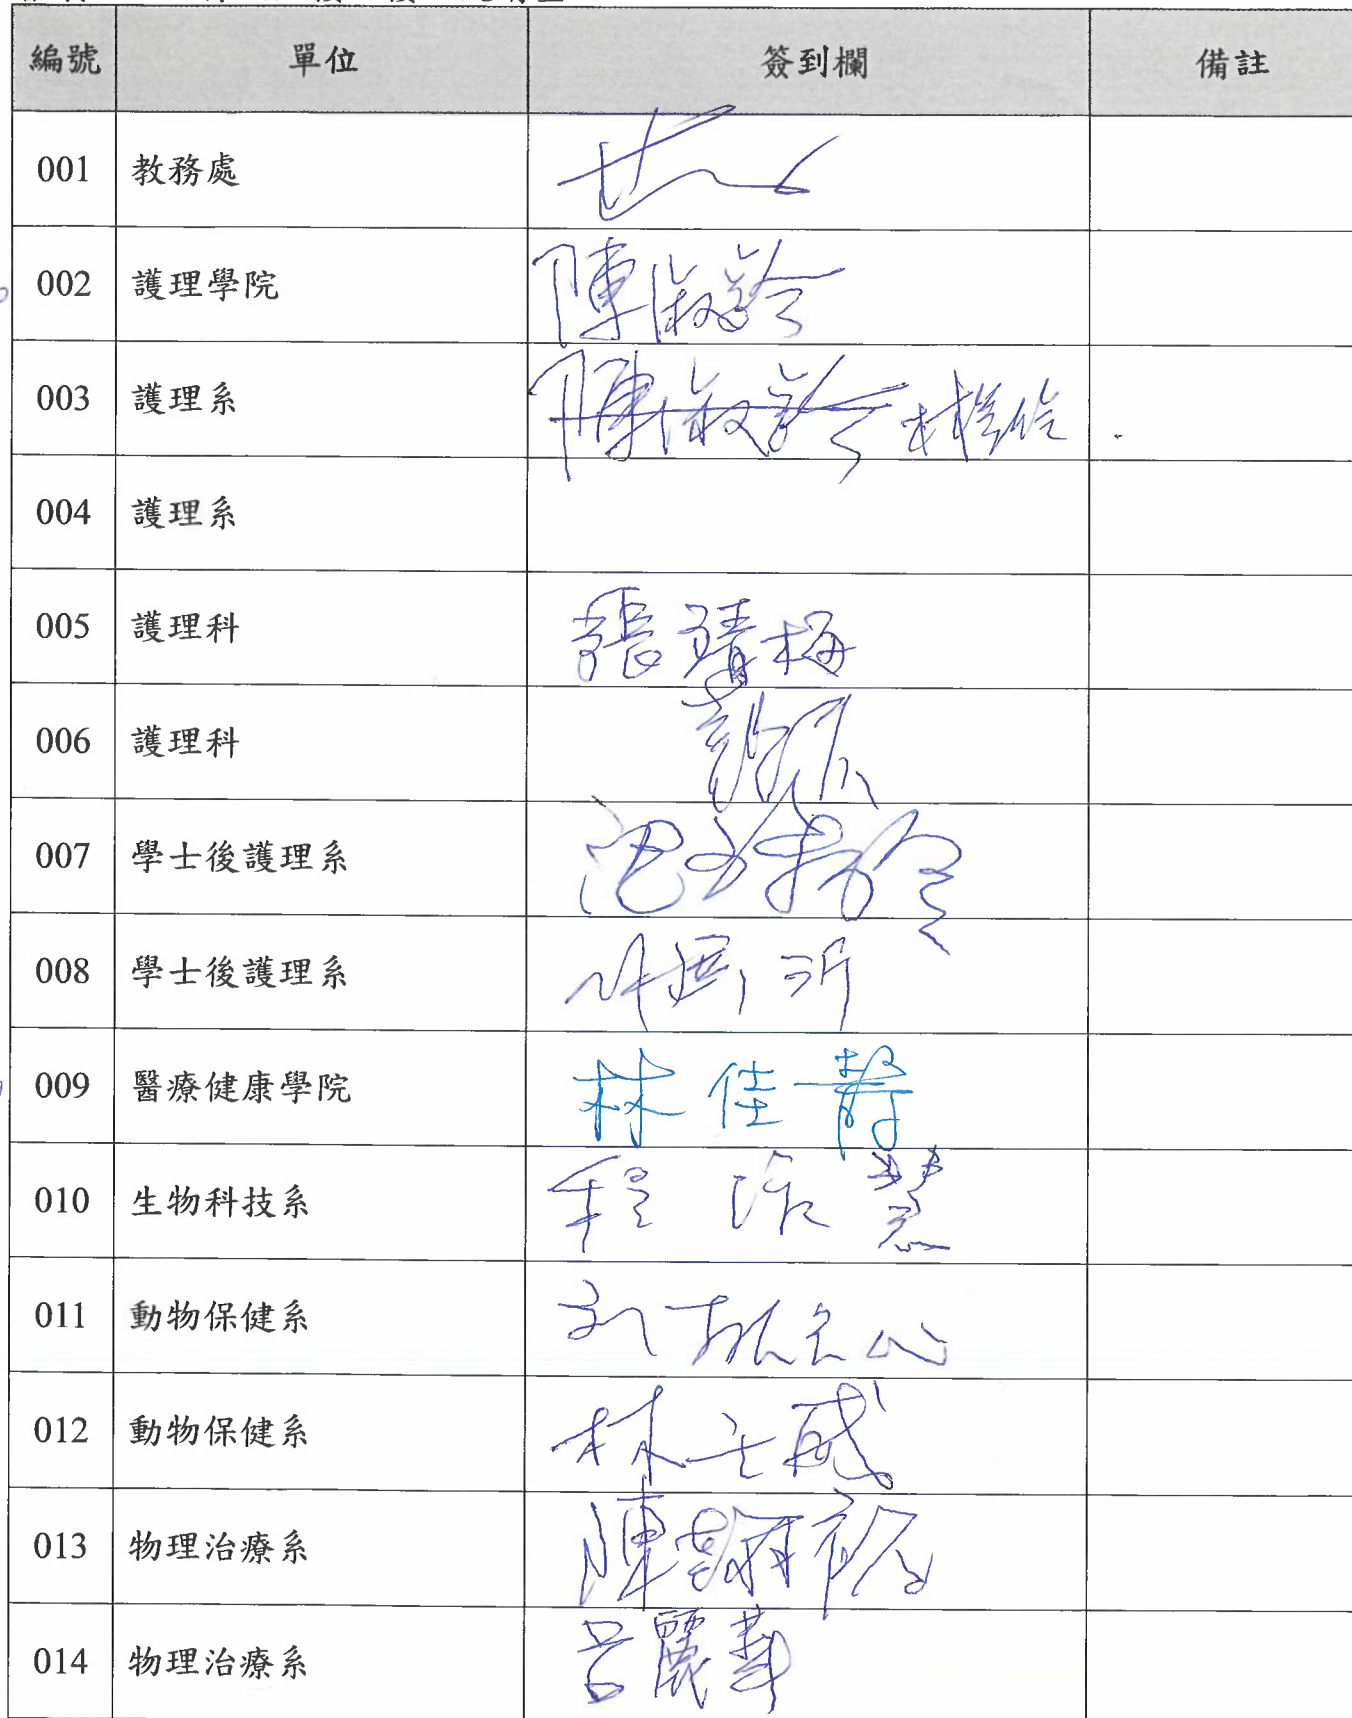 編號 單位 簽到欄 備註
001 教務處
002 護理學院 陳淑齡
003 護理系 陳淑齡
004 護理系
005 護理科 張靖梅
006 護理科
007 學士後護理系
008 學士後護理系
009 醫療健康學院 林佳靜
010 生物科技系 程 慧
011 動物保健系
012 動物保健系 林
013 物理治療系 陳
014 物理治療系 呂麗華